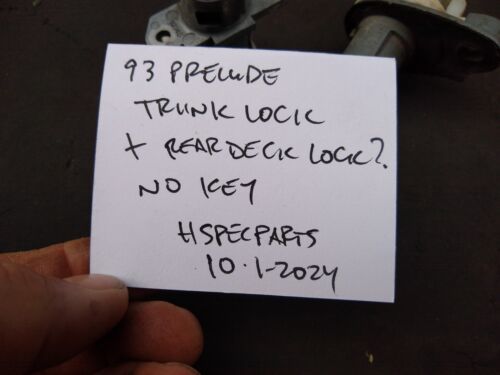 93 PRELUDE
TRUNK LOCK
+ REAR DECK LOCK?
NO KEY
HSPECPARTS
10.1-2024